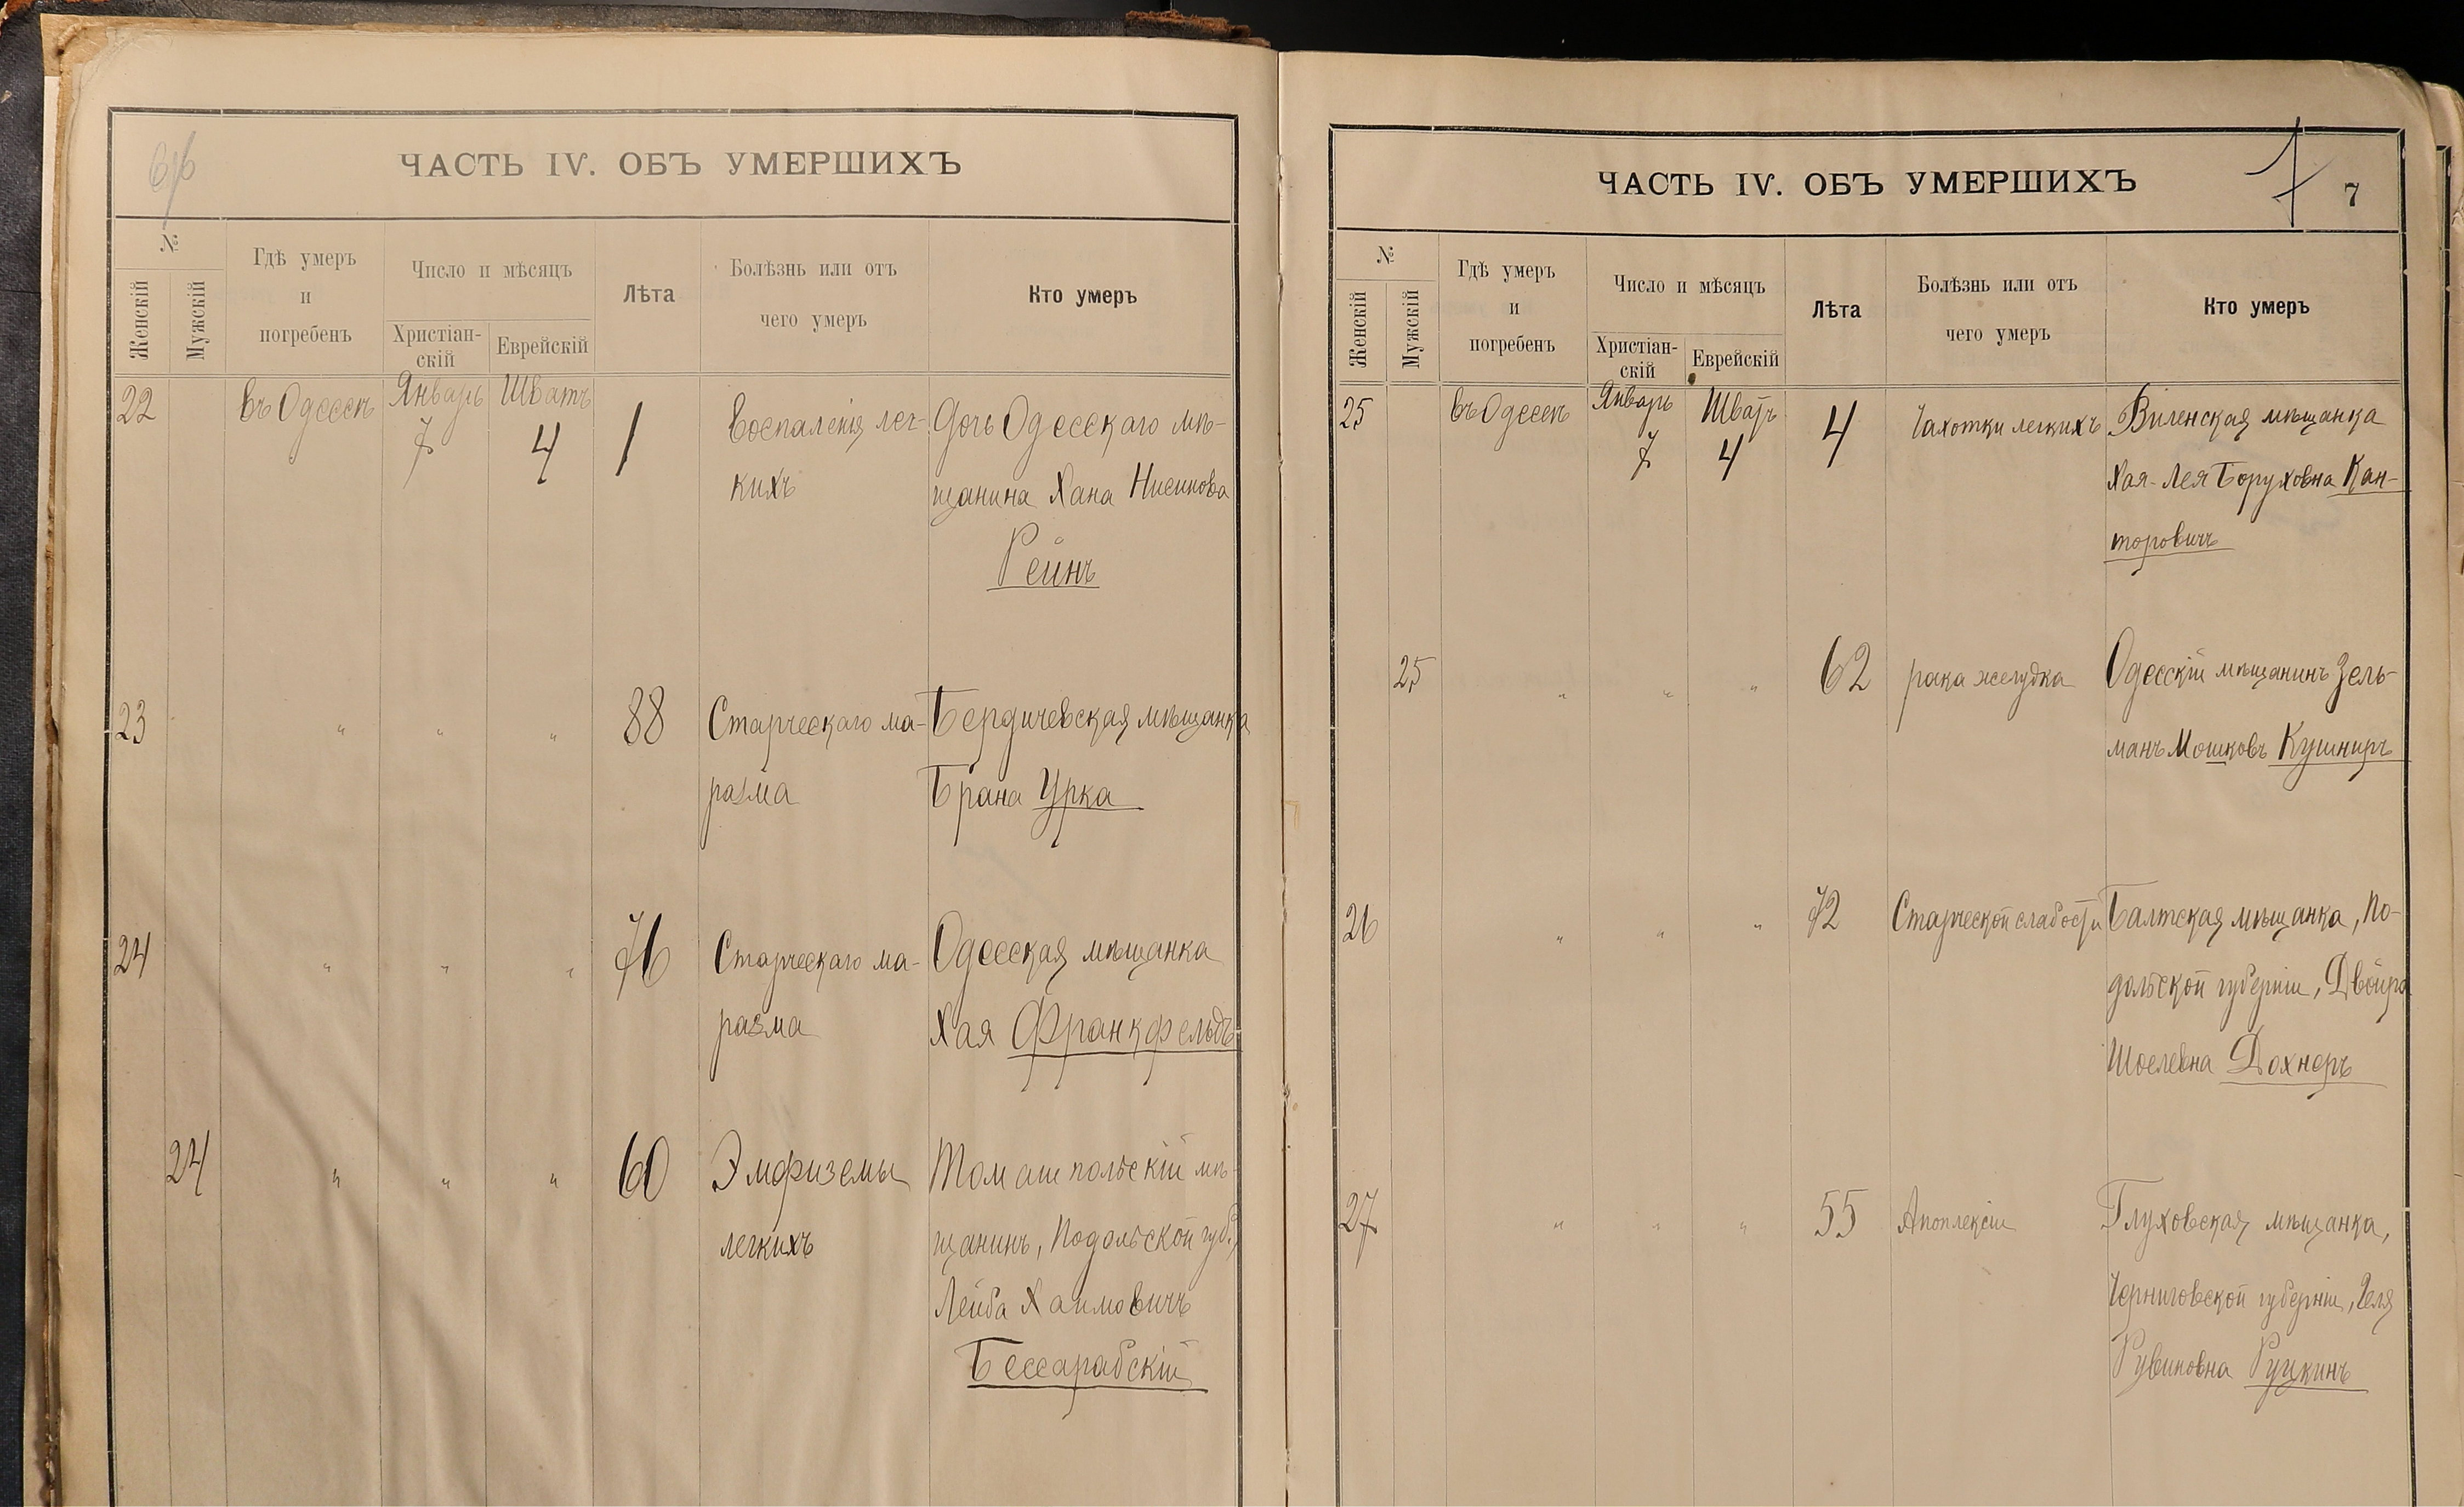 ЧАСТЬ IV. ОБЪ УМЕРШИХЪ
№
Женскій
Мужскій
Гдѣ умеръ
и
погребенъ
Число и мѣсяцъ
Христіан-
скій
Еврейскій
Лѣта
Болѣзнь или отъ
чего умеръ
Кто умеръ
22 въ Одессѣ Январь Шватъ
7 4 1
Воспаленія лег-
кихъ
Дочь Одесскаго мѣ-
щанина Хана Нисинова
Рейнъ
23 " " " 88 Старческаго ма-
разма
Бердичевская мѣщанка
Брана Урка
24 " " " 76 Старческаго ма-
разма
Одесская мѣщанка
Хая Франкфельдъ
24 " " " 60 Эмфиземы
легкихъ
Томашпольскій мѣ-
щанинъ, Подольской губ.,
Лейба Хаимовичъ
Бессарабскій
ЧАСТЬ IV. ОБЪ УМЕРШИХЪ
7 7
№
Женскій
Мужскій
Гдѣ умеръ
и
погребенъ
Число и мѣсяцъ
Христіан-
скій
Еврейскій
Лѣта
Болѣзнь или отъ
чего умеръ
Кто умеръ
25 въ Одессѣ Январь Шватъ
7 4 4
Чахотки легкихъ
Виленская мѣщанка
Хая-Лея Боруховна Кан-
торовичъ
25 " " " 62 рака желудка
Одесскій мѣщанинъ Зель-
манъ Мошковъ Кушниръ
26 " " " 72 Старческой слабости
Балтская мѣщанка, По-
дольской губерніи, Двойра
Шоелевна Дохнеръ
27 " " " 55 Апоплексіи
Глуховская мѣщанка,
Черниговской губерніи,
Рувиновна